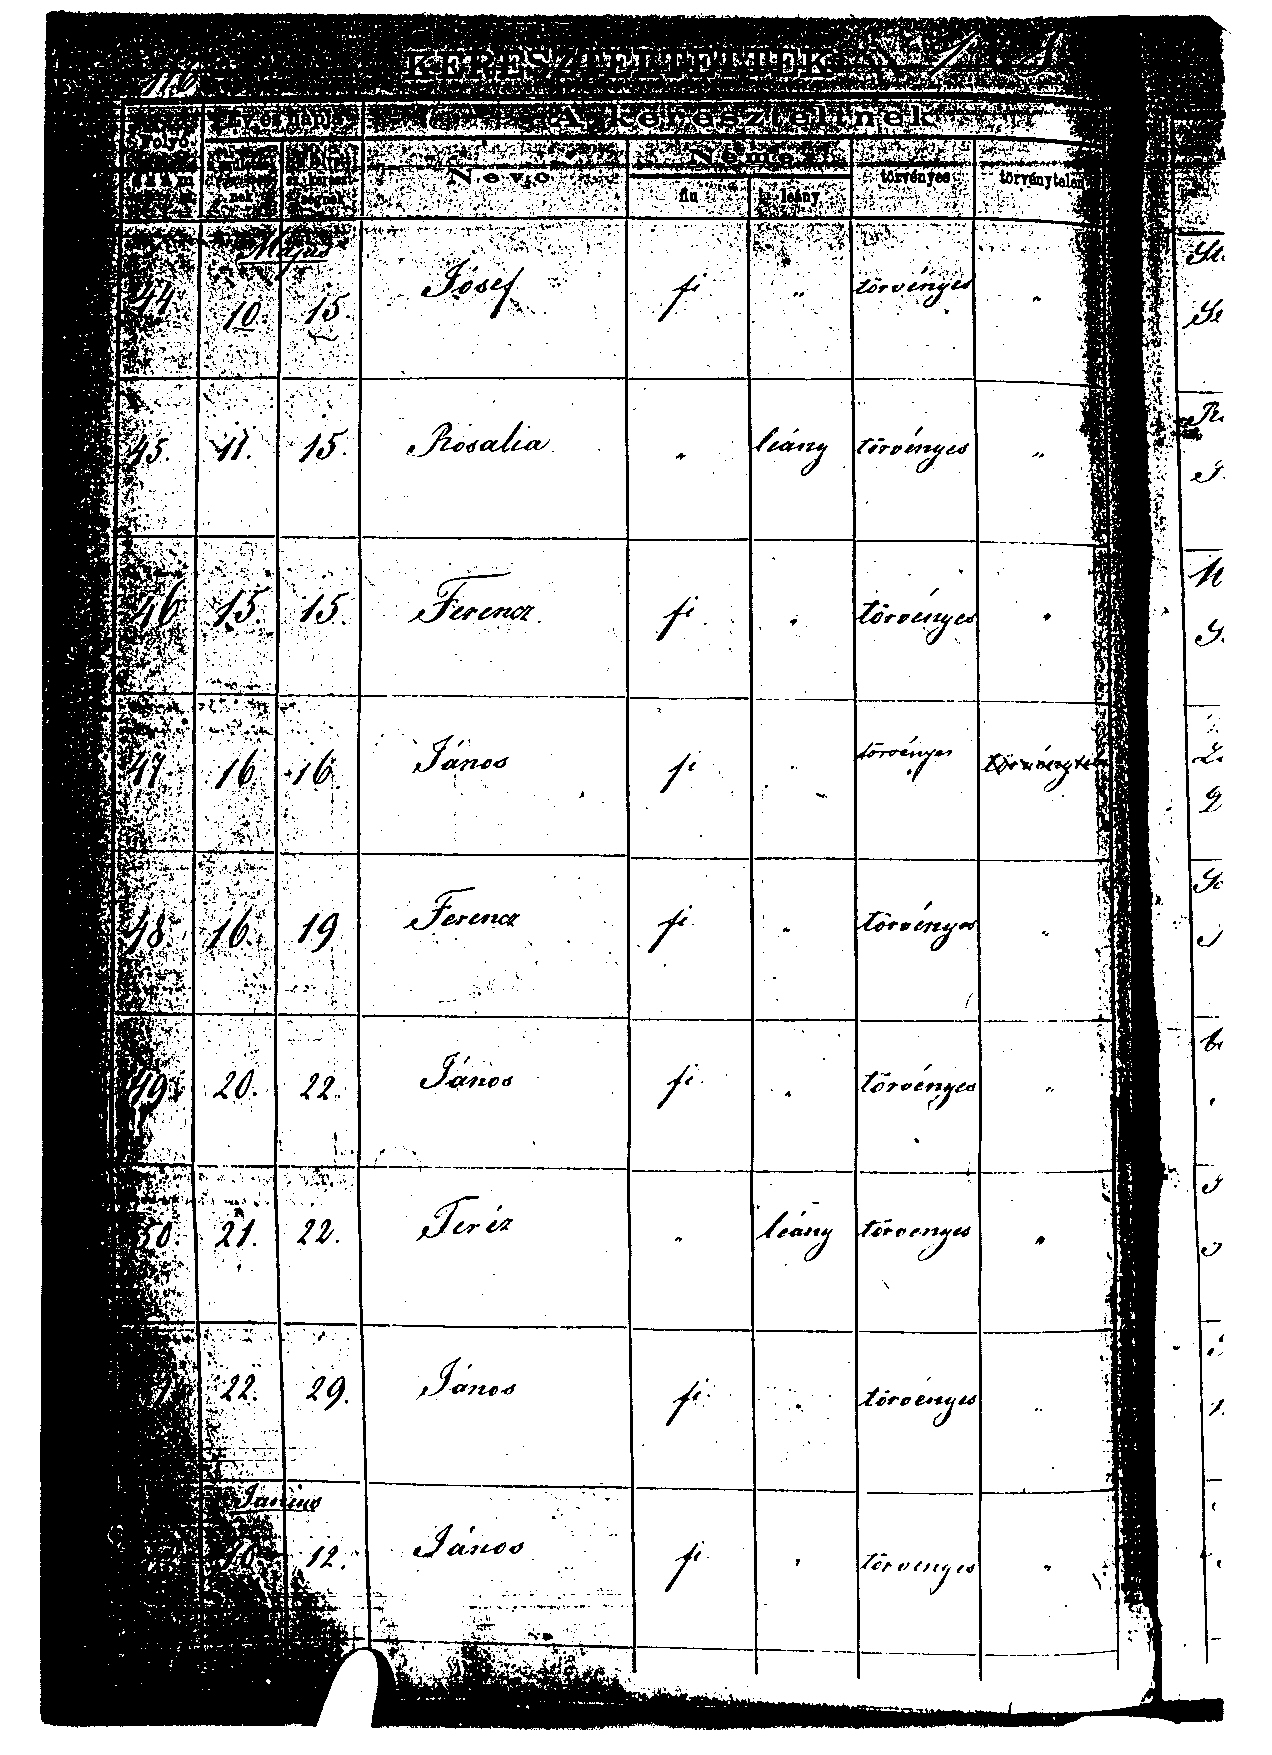 KERESZTELTETTEK
A kereszteltnek
Folyó
szám
Neve
Neme
fiu
leány
törvényes
törvénytelen
Május
44 10. 15. Jósef fi „ törvényes „
45. 11. 15. Rosalia „ leány törvényes „
46 15 15. Ferencz fi „ törvényes „
47. 16 16. János fi „ törvényes törvénytelen
48. 16. 19 Ferencz fi „ törvényes „
49. 20. 22. János fi „ törvényes „
50. 21. 22. Teréz „ leány törvenyes „
22. 29. János fi „ törvényes „
Janius
10 12. János fi „ törvenyes „